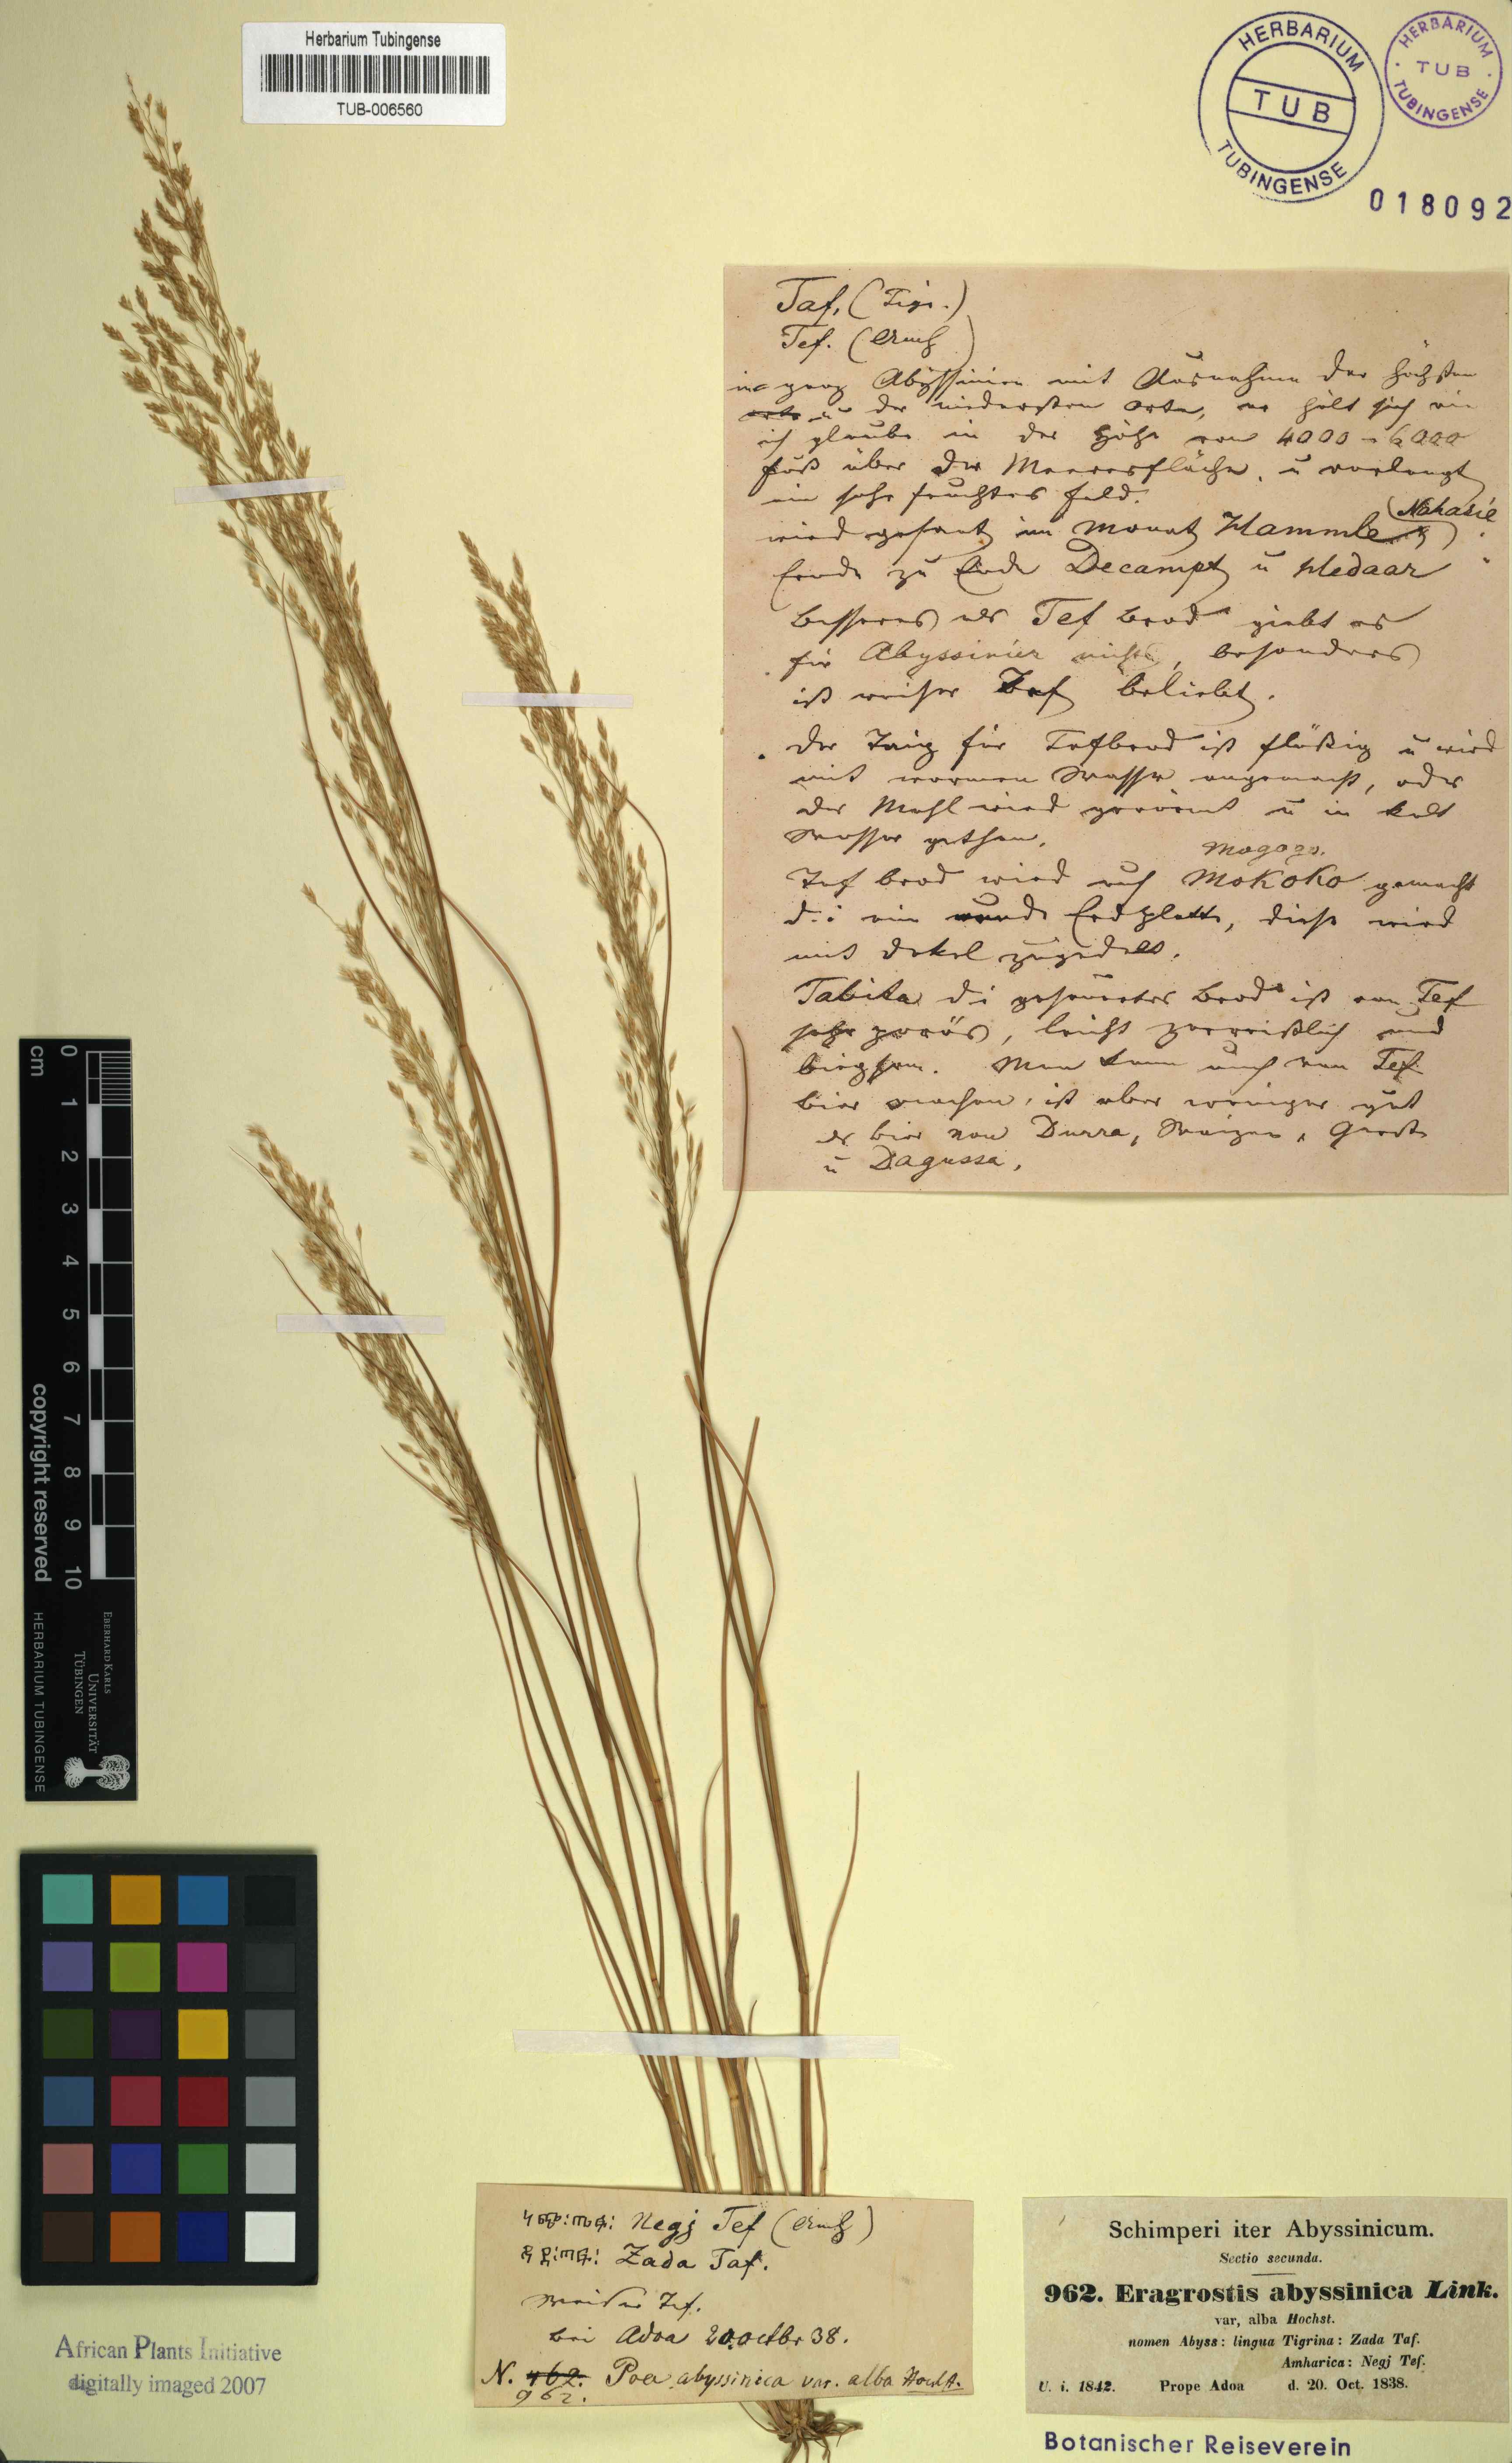 Herbarium Tubingense
TUB-006560
HERBARIUM
TUB
TUBINGENSE
HERBARIUM
TUB
TUBINGENSE
018092
Taf. (Tigr.)
Tef. (Amh)
in ganz Abyssinien mit Ausnahme der höchsten
u der niedersten Orte, es hält sich wie
ich glaube in der Höhe von 4000 - 6000
Fuß über der Meeresfläche, u verlangt
ein sehr feuchtes Feld.
wird gesaet im Monat Hammle (Nahasié)
Ernde zu Ende Decampt u Hedaar
Besseres als Tef Brod giebt es
für Abyssinier nichts, besonders
ist weiser Tef beliebt.
der Taig für Tefbrod ist flüßig u wird
mit warmen Wasser angemacht, oder
der Mehl wird u in kalt
Wasser gethan.
Mogogo.
Tef brod wird auf MoKoKo gemacht
d.i eine runde Erdplatte, diese wird
mit Dekel zugedekt.
Tabita d i gesäuertes Brod ist von Tef
sehr porös, leicht zerreißlich und
biegsam. Man kann auch von Tef
bier machen, ist aber weniger gut
als bier von Durra, Waizen, Gerste
u Dagussa.
cm
0 1 2 3 4 5 6 7 8 9 10
copyright reserved
HERBARIUM TUBINGENSE
EBERHARD KARLS
UNIVERSITÄT
TÜBINGEN
African Plants Initiative
digitally imaged 2007
ነጭ፡ጤፍ፡ Negj Tef (Amh)
ጸዳ፡ጣፍ፡ Zada Taf.
Weiser Tef.
bei Adoa 20. octbr 38.
N. 462. Poa abyssinica var. alba Hochst.
962.
Schimperi iter Abyssinicum.
Sectio secunda.
962. Eragrostis abyssinica Link.
var, alba Hochst.
nomen Abyss: lingua Tigrina: Zada Taf.
Amharica: Negj Tef.
U. i. 1842. Prope Adoa d. 20. Oct. 1838.
Botanischer Reiseverein